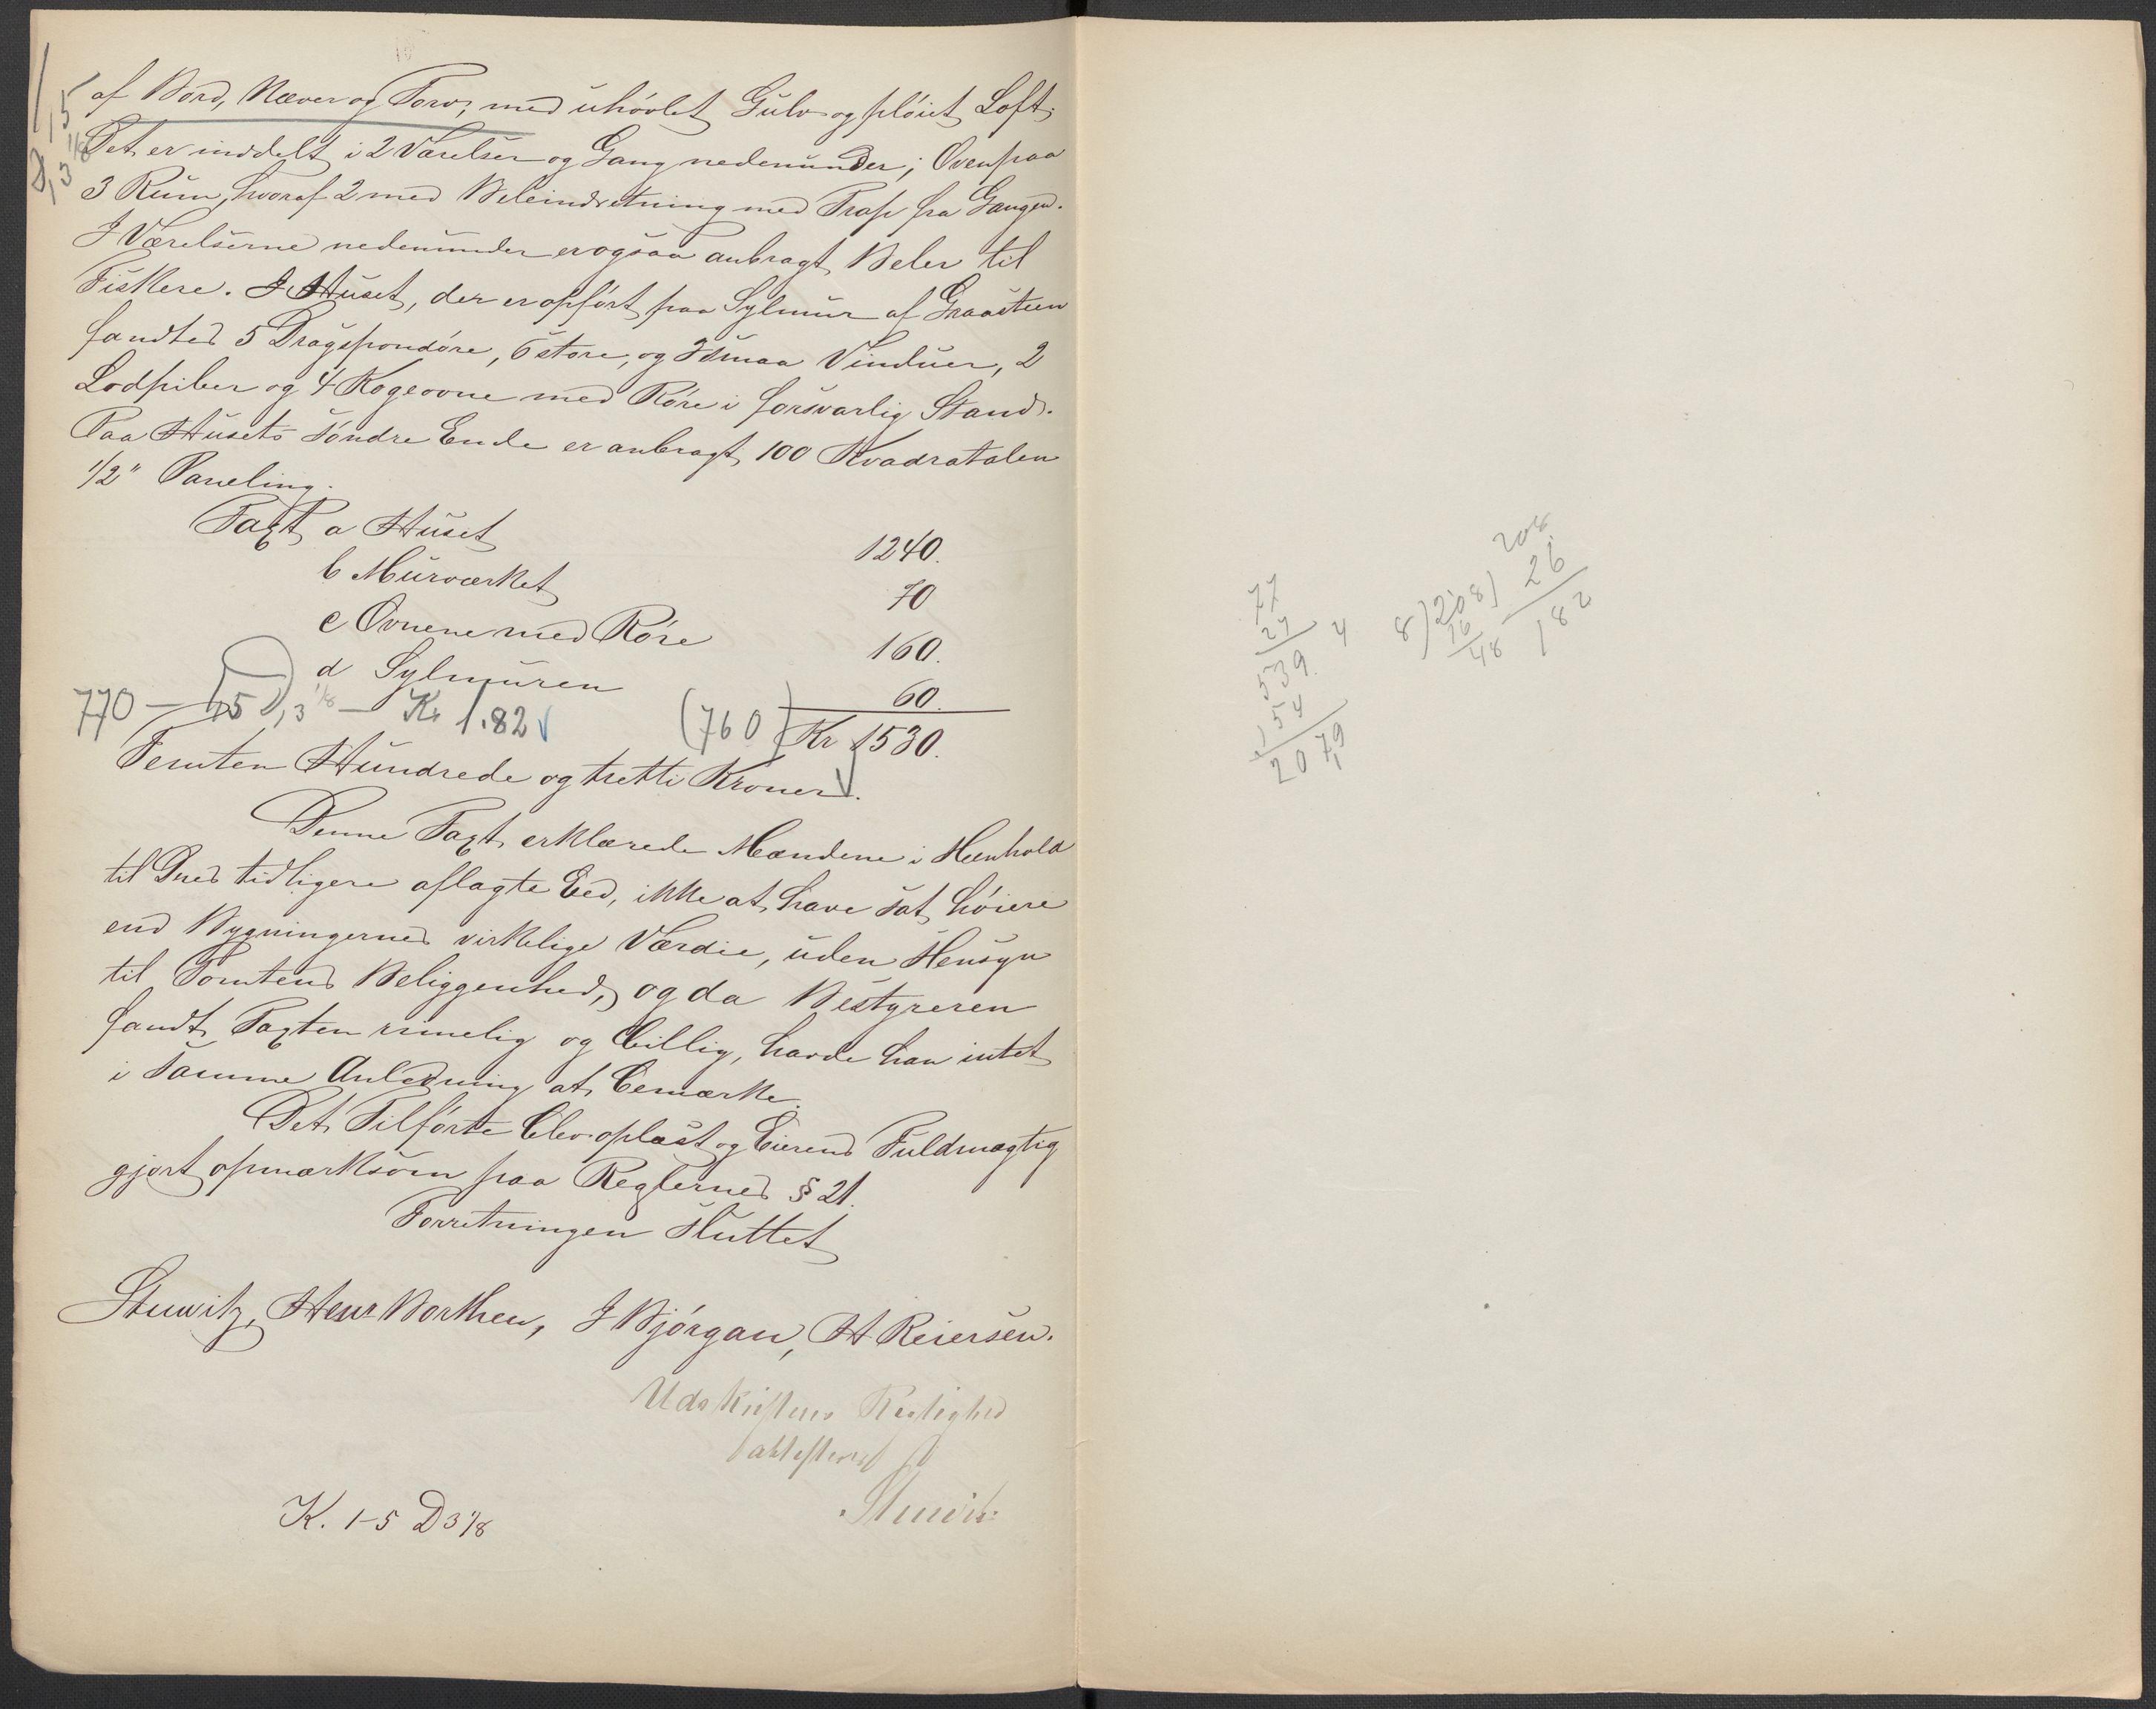 af Bord, Næver og Torv, med uhövlet Gulv og plöiet Loft.
Det er inddelt i 2 Værelser og Gang nedenunder; Ovenpaa
3 Rum, hvoraf 2 med Beleindretning med Trap fra Gangen.
I Værelserne nedenunder er ogsaa anbragt Beler til
Fiskere. I Huset, der er opfört paa Sylmur af Graasteen
fandtes 5 Dragspondöre, 6 store, og 2 smaa Vinduer, 2
Lodpiber og 4 Kogeovne med Röre i forsvarlig Stand.
Paa Husets söndre Ende er anbragt 100 Kvadratalen
1/2" Paneling.
Taxt a Huset 1240.
b Murværket 70
c Ovnene med Röre 160.
d Sylmuren 60.
770 — 1,5 D,3 1/8 — Kr 1.82 (760) Kr 1530.
Femten Hundrede og tretti Kroner.
Denne Taxt erklærede Mændene i Henhold
til Deres tidligere aflagte Eed, ikke at have sat höiere
end Bygningernes virkelige Værdie, uden Hensyn
til Tomtens Beliggenhed, og da Bestyreren
fandt Taxten rimelig og billig, havde han intet
i samme Anledning at bemærke.
Det Tilförte blev oplæst og Eierens Fuldmægtig
gjort opmærksom paa Reglernes § 21.
Forretningen sluttet
Stuwitz, Henr Borthen, J Björgan, H Reiersen.
Udskriftens Rigtighed
attesteres
Stuwitz
K. 1-5 D 3 1/8
1,5
D,3 1/8
77
27
539
154
2079
4
8)208)
16
48
208
26
182